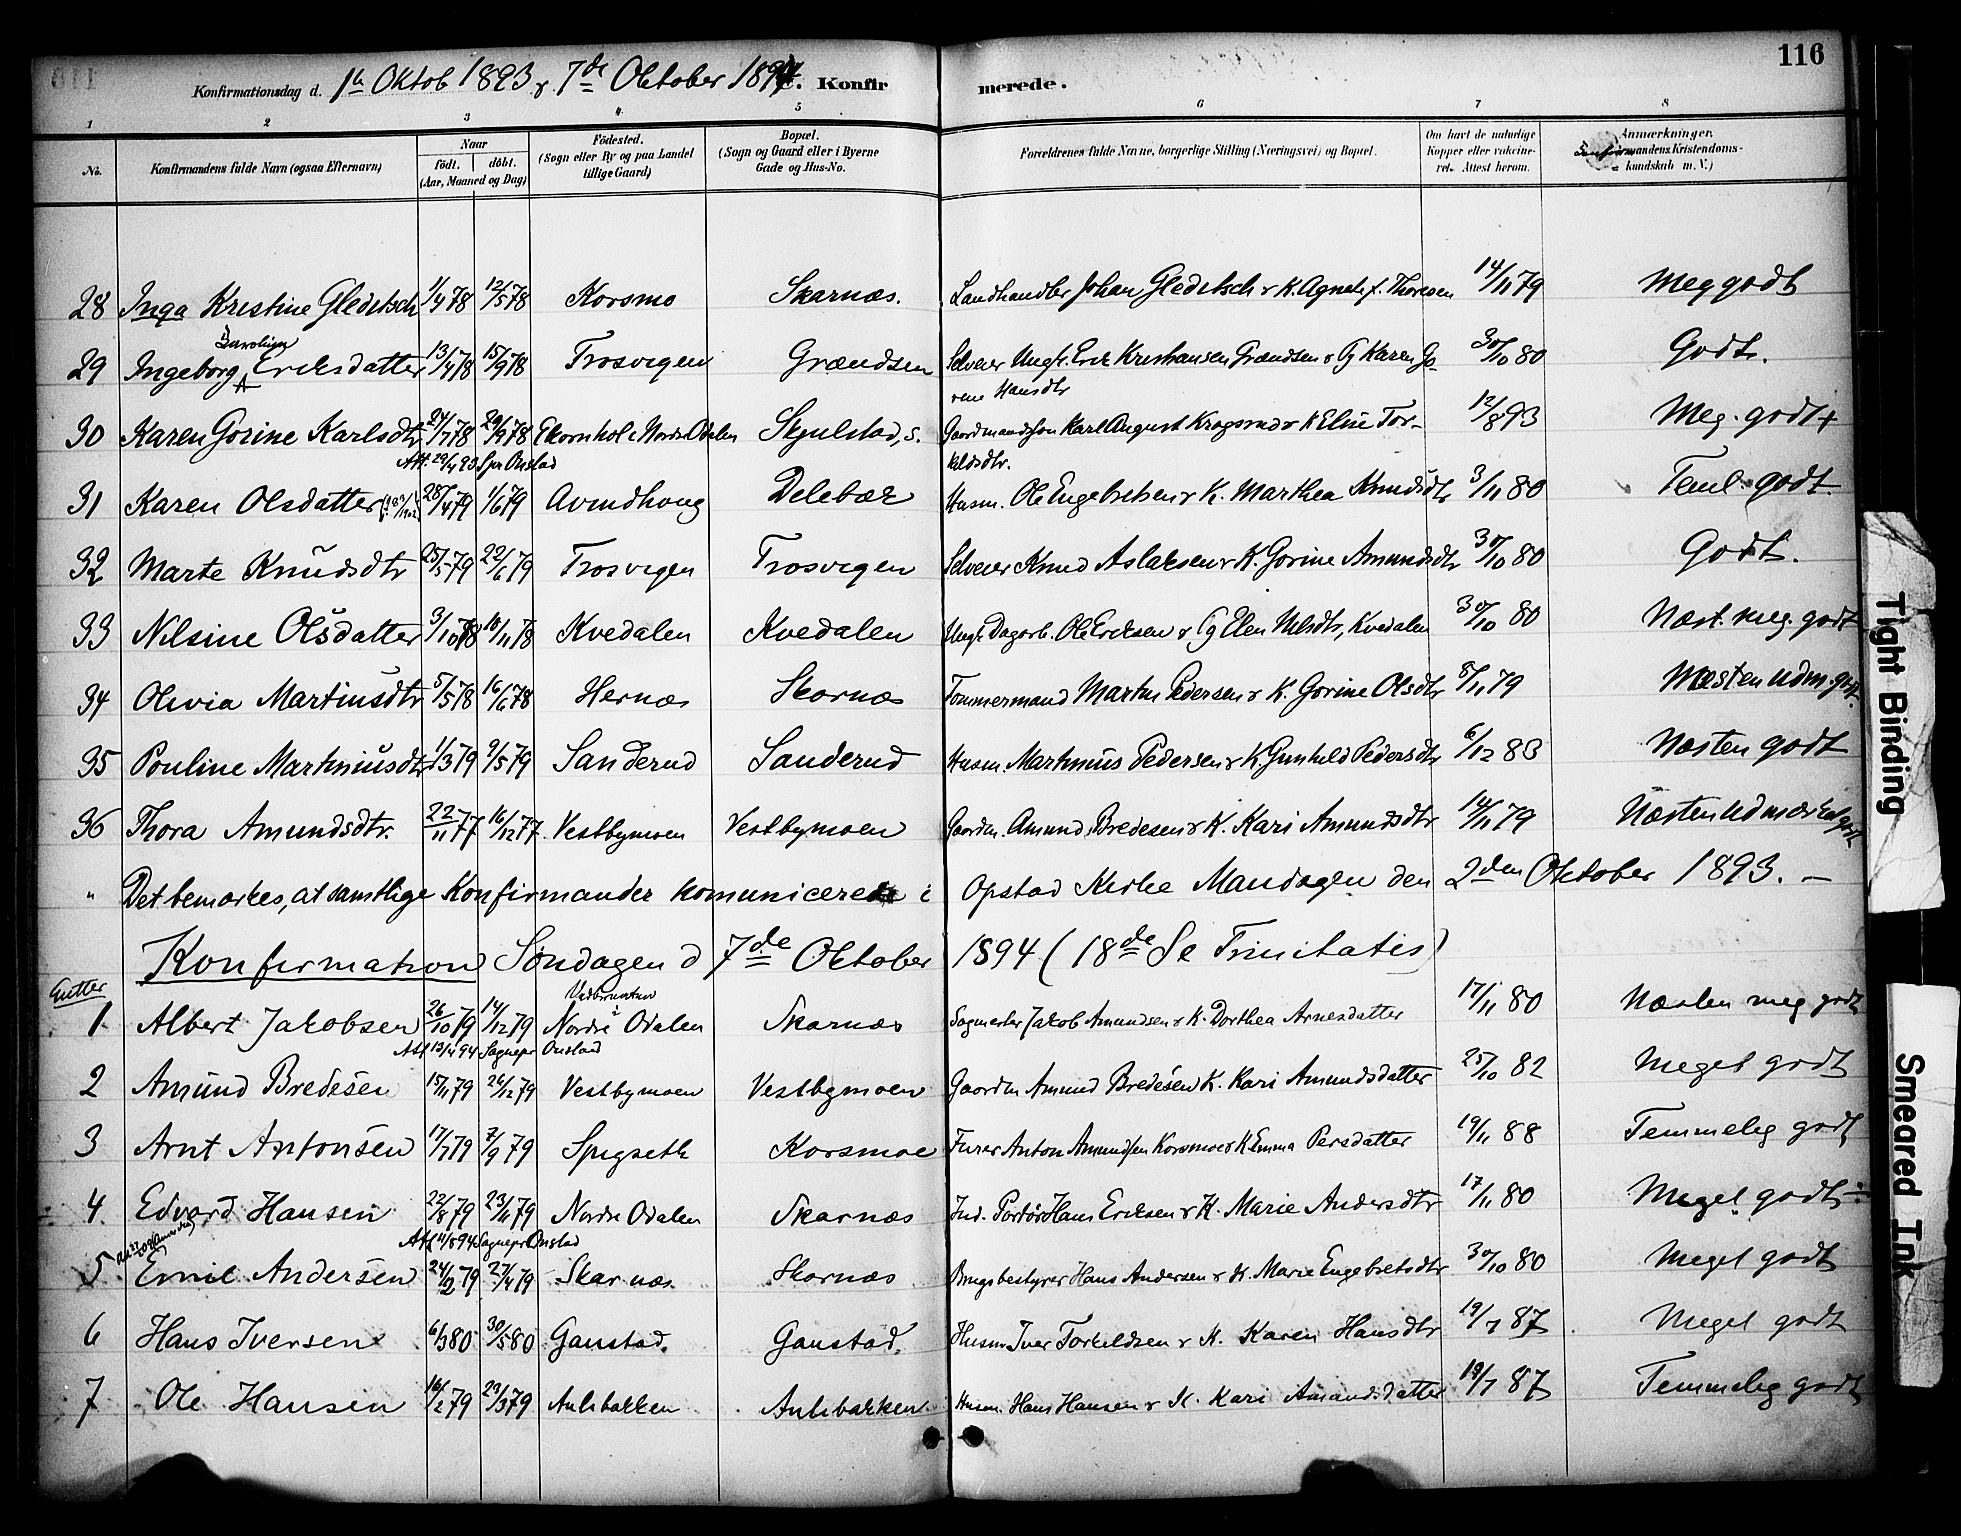 116
Konfirmationsdag d. 1ste Oktob 1893 & 7de Oktober 1894 C. Konfirmerede.
1 2 3 4 5 6 7 8
No. Konfirmandens fulde Navn (ogsaa Efternavn) Naar födt. döbt. (Aar, Maaned og Dag) Födested. (Sogn eller By og paa Landet tillige Gaard) Bopæl. (Sogn og Gaard eller i Byerne Gade og Hus-No. Forældrenes fulde Navne, borgerlige Stilling (Næringsvei) og Bopæl. Om havt de naturlige Kopper eller vakcineret. Attest herom. Anmærkninger. Konfirmandens Kristendomskundskab m. V.)
28 Inga Kristine Gleditsch 1/4 78 12/5 78 Korsmo Skarnæs. Landhandler Johan Gleditsch & K. Agnete f. Thoresen 14/11 79 Meg godt
29 Ingeborg Karoline Eriksdatter 13/4 78 15/9 78 Trosvigen Grændsen Selveier Ungk. Erik Kristiansen Grændsen & Pg Karen Gorene Hansdtr 30/10 80 Godt.
30 Karen Gorine Karlsdtr 24/7 78 29/9 78 Ekornhol i Nordre Odalen Skjulstad, s. Gaardmandssøn Karl August Kragsrud & K Eline Torkildsdtr. 12/8 93 Meg. godt +
Att. 29/4 93 Spr Onstad
31 Karen Olsdatter 28/4 79 1/6 79 Avindhoug Delebæk Husm. Ole Engebretsen & K. Marthea Knudsdtr 3/11 80 Teml. godt.
32 Marte Knudsdtr 25/5 79 22/6 79 Trosvigen Trosvigen Selveier Knud Aslaksen & K. Gorine Amundsdtr 30/10 80 Godt.
33 Nilsine Olsdatter 3/10 78 10/11 78 Kvedalen Kvedalen Ungk. Dagarb. Ole Eriksen & Pg Elen Nilsdtr, Kvedalen 30/10 80 Næst. meg. godt
34 Olivia Martinsdtr 5/5 78 16/6 78 Hernæs Skarnæs Tømmermand Martin Pedersen & K. Gorine Olsdtr 8/11 79 Næsten udm. godt.
35 Pouline Martiniusdtr 1/3 79 9/5 79 Sanderud Sanderud Husm. Martinius Pedersen & K. Gunhild Pedersdtr 6/12 83 Næsten godt
36 Thora Amundsdtr. 22/11 77 16/12 77. Vestbymoen Vestbymoen Gaardm. Amund Bredesen & K. Kari Amundsdtr 14/11 79 Næsten Udmærket godt
" Det bemærkes, at samtlige Konfirmander komunicerede i Opstad Kirke Mandagen den 2den Oktober 1893. —
Konfirmation Søndagen d 7de Oktober 1894 (18de Se Trinitatis)
Gutter
1. Albert Jakobsen 26/10 79 14/12 79 Nordre Odalen Skarnæs Sagmester Jakob Amundsen & K. Dorthea Arnesdatter 17/11 80 Næsten meg godt
Att 13/4 94 Sognepr Onstad
2 Amund Bredesen 15/11 79 26/12 79 Vestbymoen Vestbymoen Gaardm Amund Bredesen K. Kari Amundsdatter 25/10 82 Meget godt
3 Arnt Antonsen 17/7 79 7/9 79 Spigseth Korsmoe Furer Anton Amundsen Korsmoe & K. Emma Persdatter 19/11 88 Temmelig godt
4. Edvard Hansen 22/8 79 23/11 79 Nordre Odalen Skarnæs Ind. Portør Hans Eriksen & K. Marie Andersdtr 17/11 80 Meget godt ÷
Att 11/8 94 Sognepr Onstad
5 Emil Andersen 24/2 79 27/4 79 Skarnæs Skarnæs Brugsbestyrer Hans Andersen & K. Marie Engebretsdtr 30/10 80 Meget godt
6 Hans Iversen 6/3 80 30/5 80 Ganstad. Ganstad. Husm Iver Torkildsen & K. Karen Hansdtr 19/7 87 Meget godt
7 Ole Hansen 16/2 79 23/3 79 Aulibakken Aulibakken Husm. Hans Hansen & K. Kari Amundsdatter 19/7 87 Temmelig godt
Tight Binding
Smeared Ink